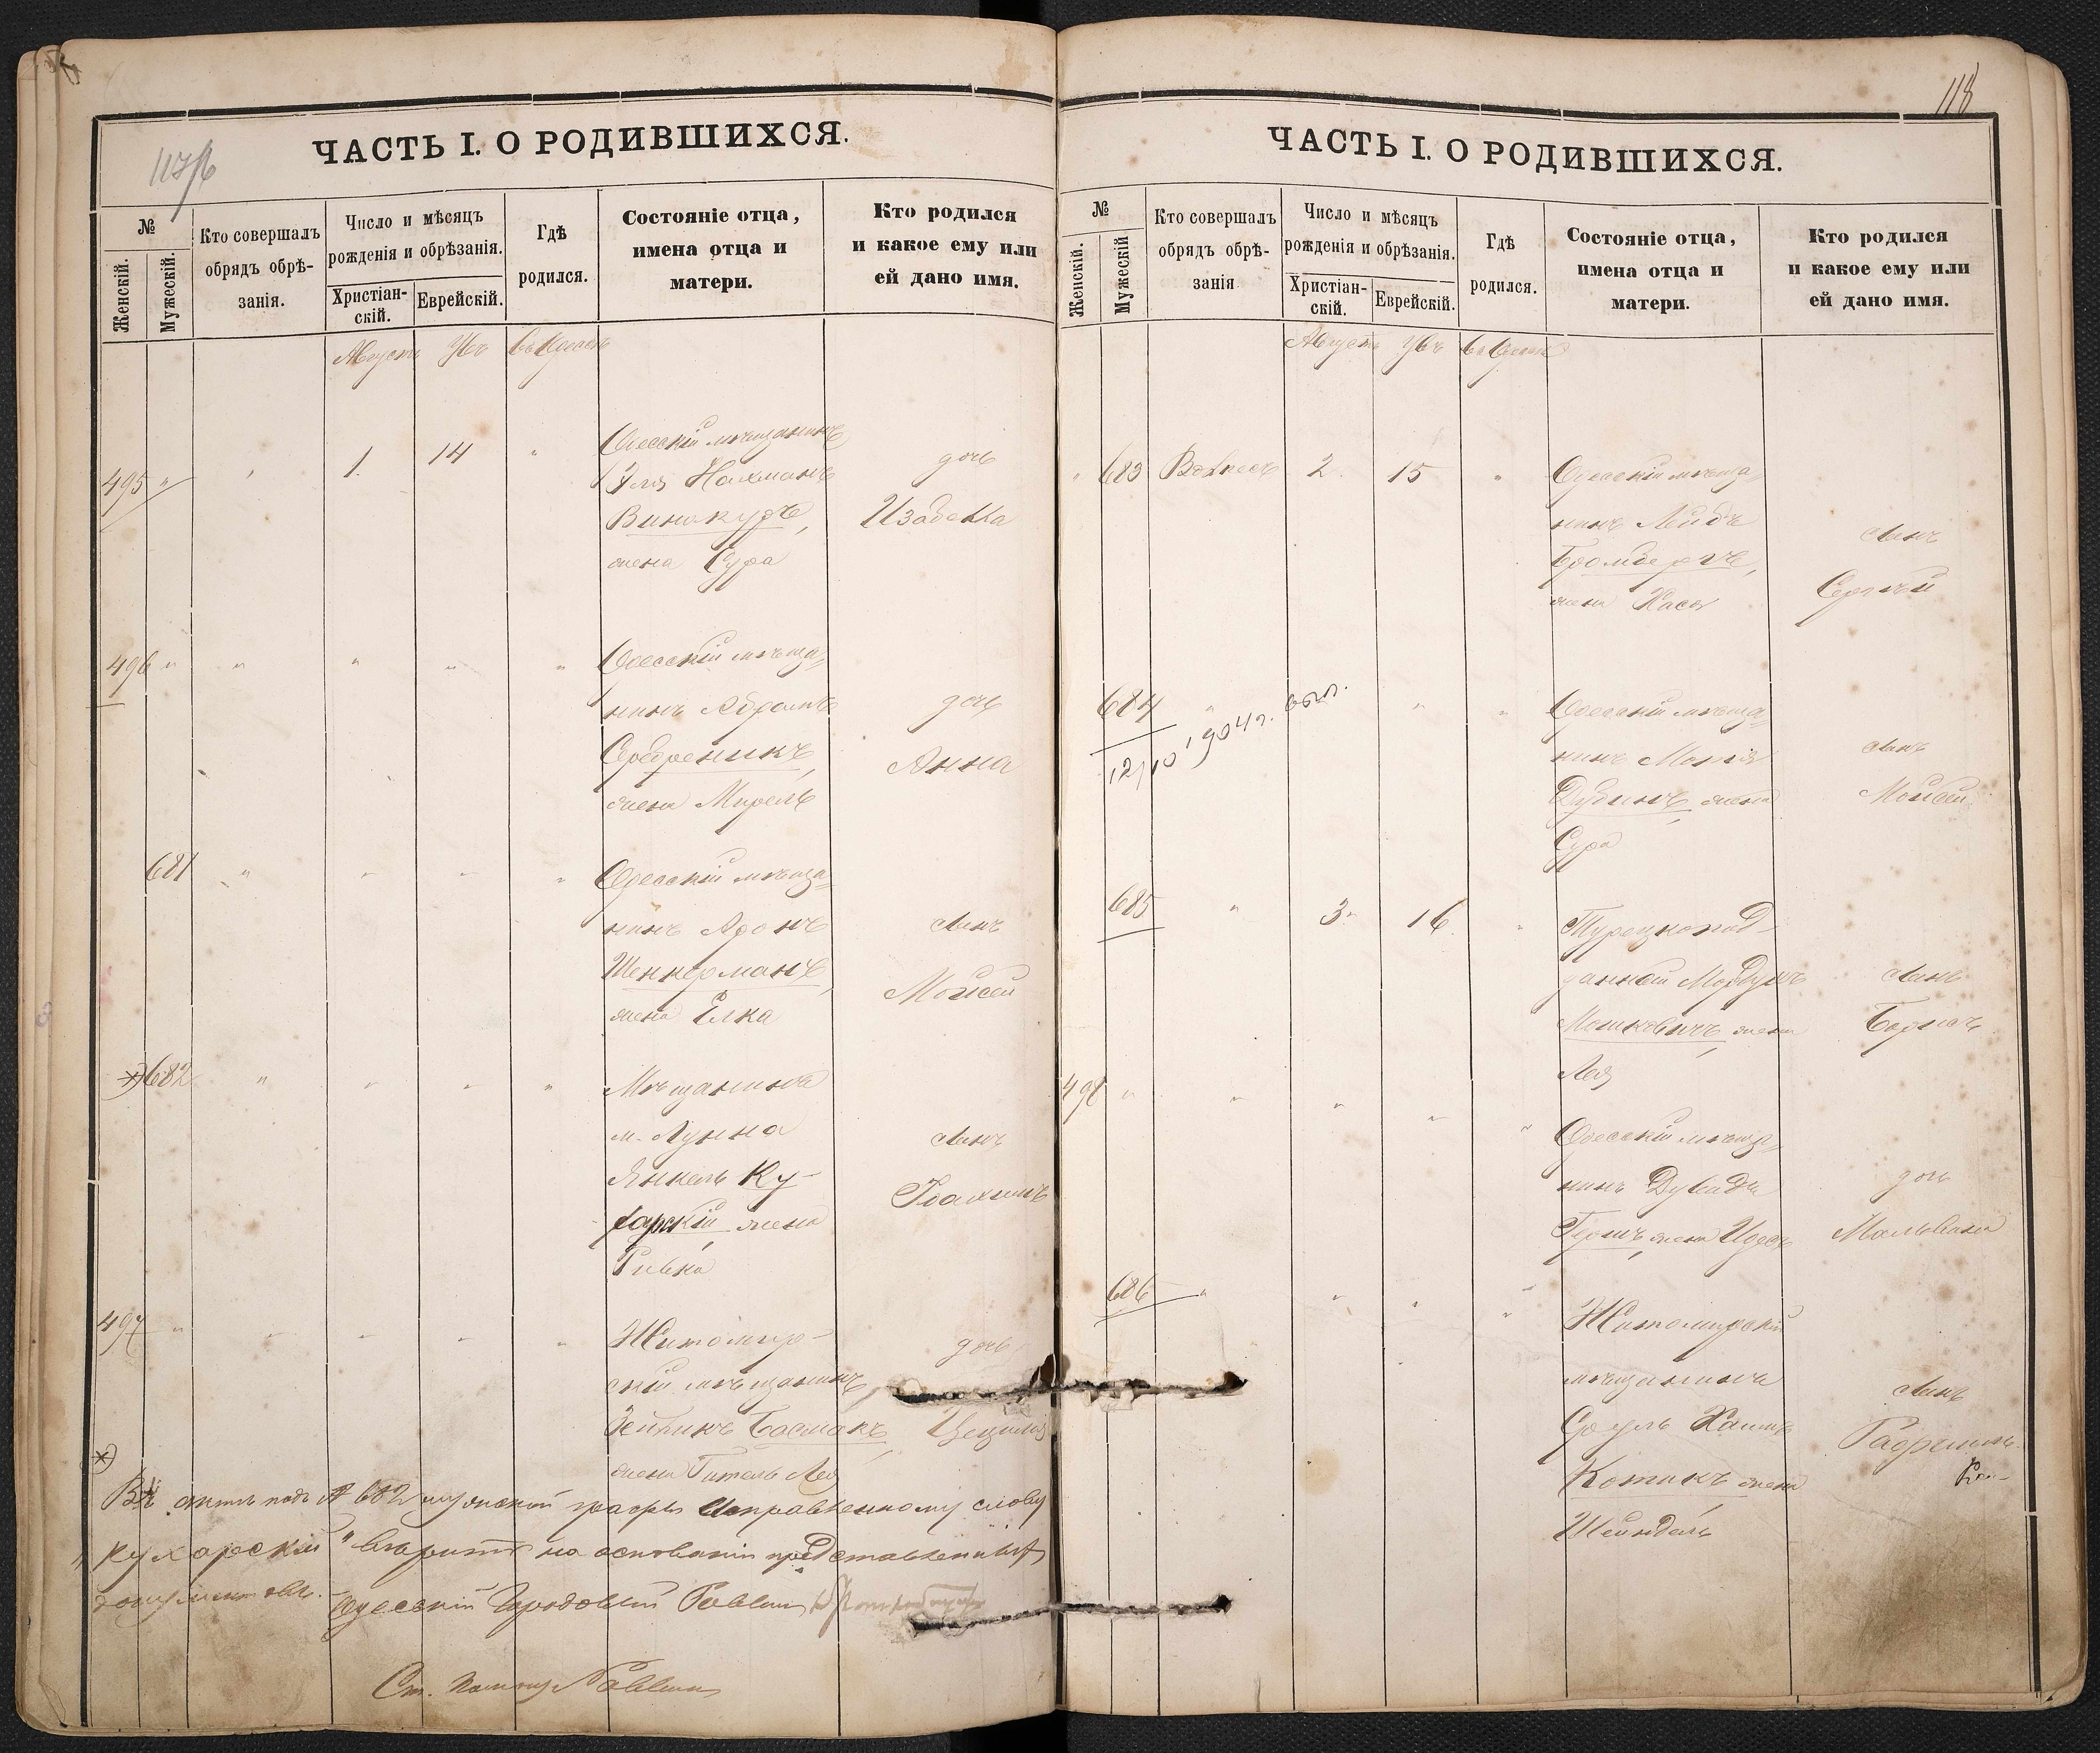 ЧАСТЬ I. О РОДИВШИХСЯ.
№
Женскій.
Мужескій.
Кто совершалъ
обрядъ обрѣ-
занія.
Число и мѣсяцъ
рожденія и обрѣзанія.
Христіан-
скій.
Еврейскій.
Гдѣ
родился.
Состояніе отца,
имена отца и
матери.
Кто родился
и какое ему или
ей дано имя.
Августъ
въ Одессѣ
495 " " 1. 14 "
Одесскій мѣщанинъ
Нахманъ
Винокуръ,
жена Сура
дочь
Изабелла
496 " " " " "
Одесскій мѣща-
нинъ Абрамъ
Сребреникъ,
жена Мирель
дочь
Анна
681 " " " "
Одесскій мѣща-
нинъ Аронъ
Шенкерманъ,
жена Елка
сынъ
Мойсей
x) 682 " " " "
Мѣщанинъ
м. Лунна
Янкель Ку-
харскій, жена
Ривка
сынъ
Іоахимъ
497 " " " " "
Житомир-
скій мѣщанинъ
Басмакъ,
жена Гитель Лея
дочь
Цецилія
x)
Въ актѣ подъ № 682 мужской графы исправленному слову
"Кухарскій" вѣрить на основаніи представленныхъ
документовъ. Одесскій Городовый Раввинъ
Ст. Помощ. Раввина
118
ЧАСТЬ I. О РОДИВШИХСЯ.
№
Женскій.
Мужескій
Кто совершалъ
обрядъ обрѣ-
занія
Число и мѣсяцъ
рожденія и обрѣзанія.
Христіан-
скій.
Еврейскій.
Гдѣ
родился.
Состояніе отца,
имена отца и
матери.
Кто родился
и какое ему или
ей дано имя.
Августъ
въ Одессѣ
" 683 2. 15 "
Одесскій мѣща-
нинъ Лейбъ
Бромбергъ,
жена Хася
сынъ
Сергѣй
684 " " "
12/10 1904 г.
Одесскій мѣща-
нинъ
Дубинъ, жена
Сура
сынъ
Мойсей
685 " 3 " 16 "
Турецкопод-
данный Мордухъ
Мошковичъ, жена
Лея
сынъ
Борисъ
498 " " " " "
Одесскій мѣща-
нинъ Дувидъ
Гершъ, жена Идесъ
дочь
Мальвина
686 " " " "
Житомирскій
мѣщанинъ
Сруль Хаимъ
Котикъ, жена
Шейндель
сынъ